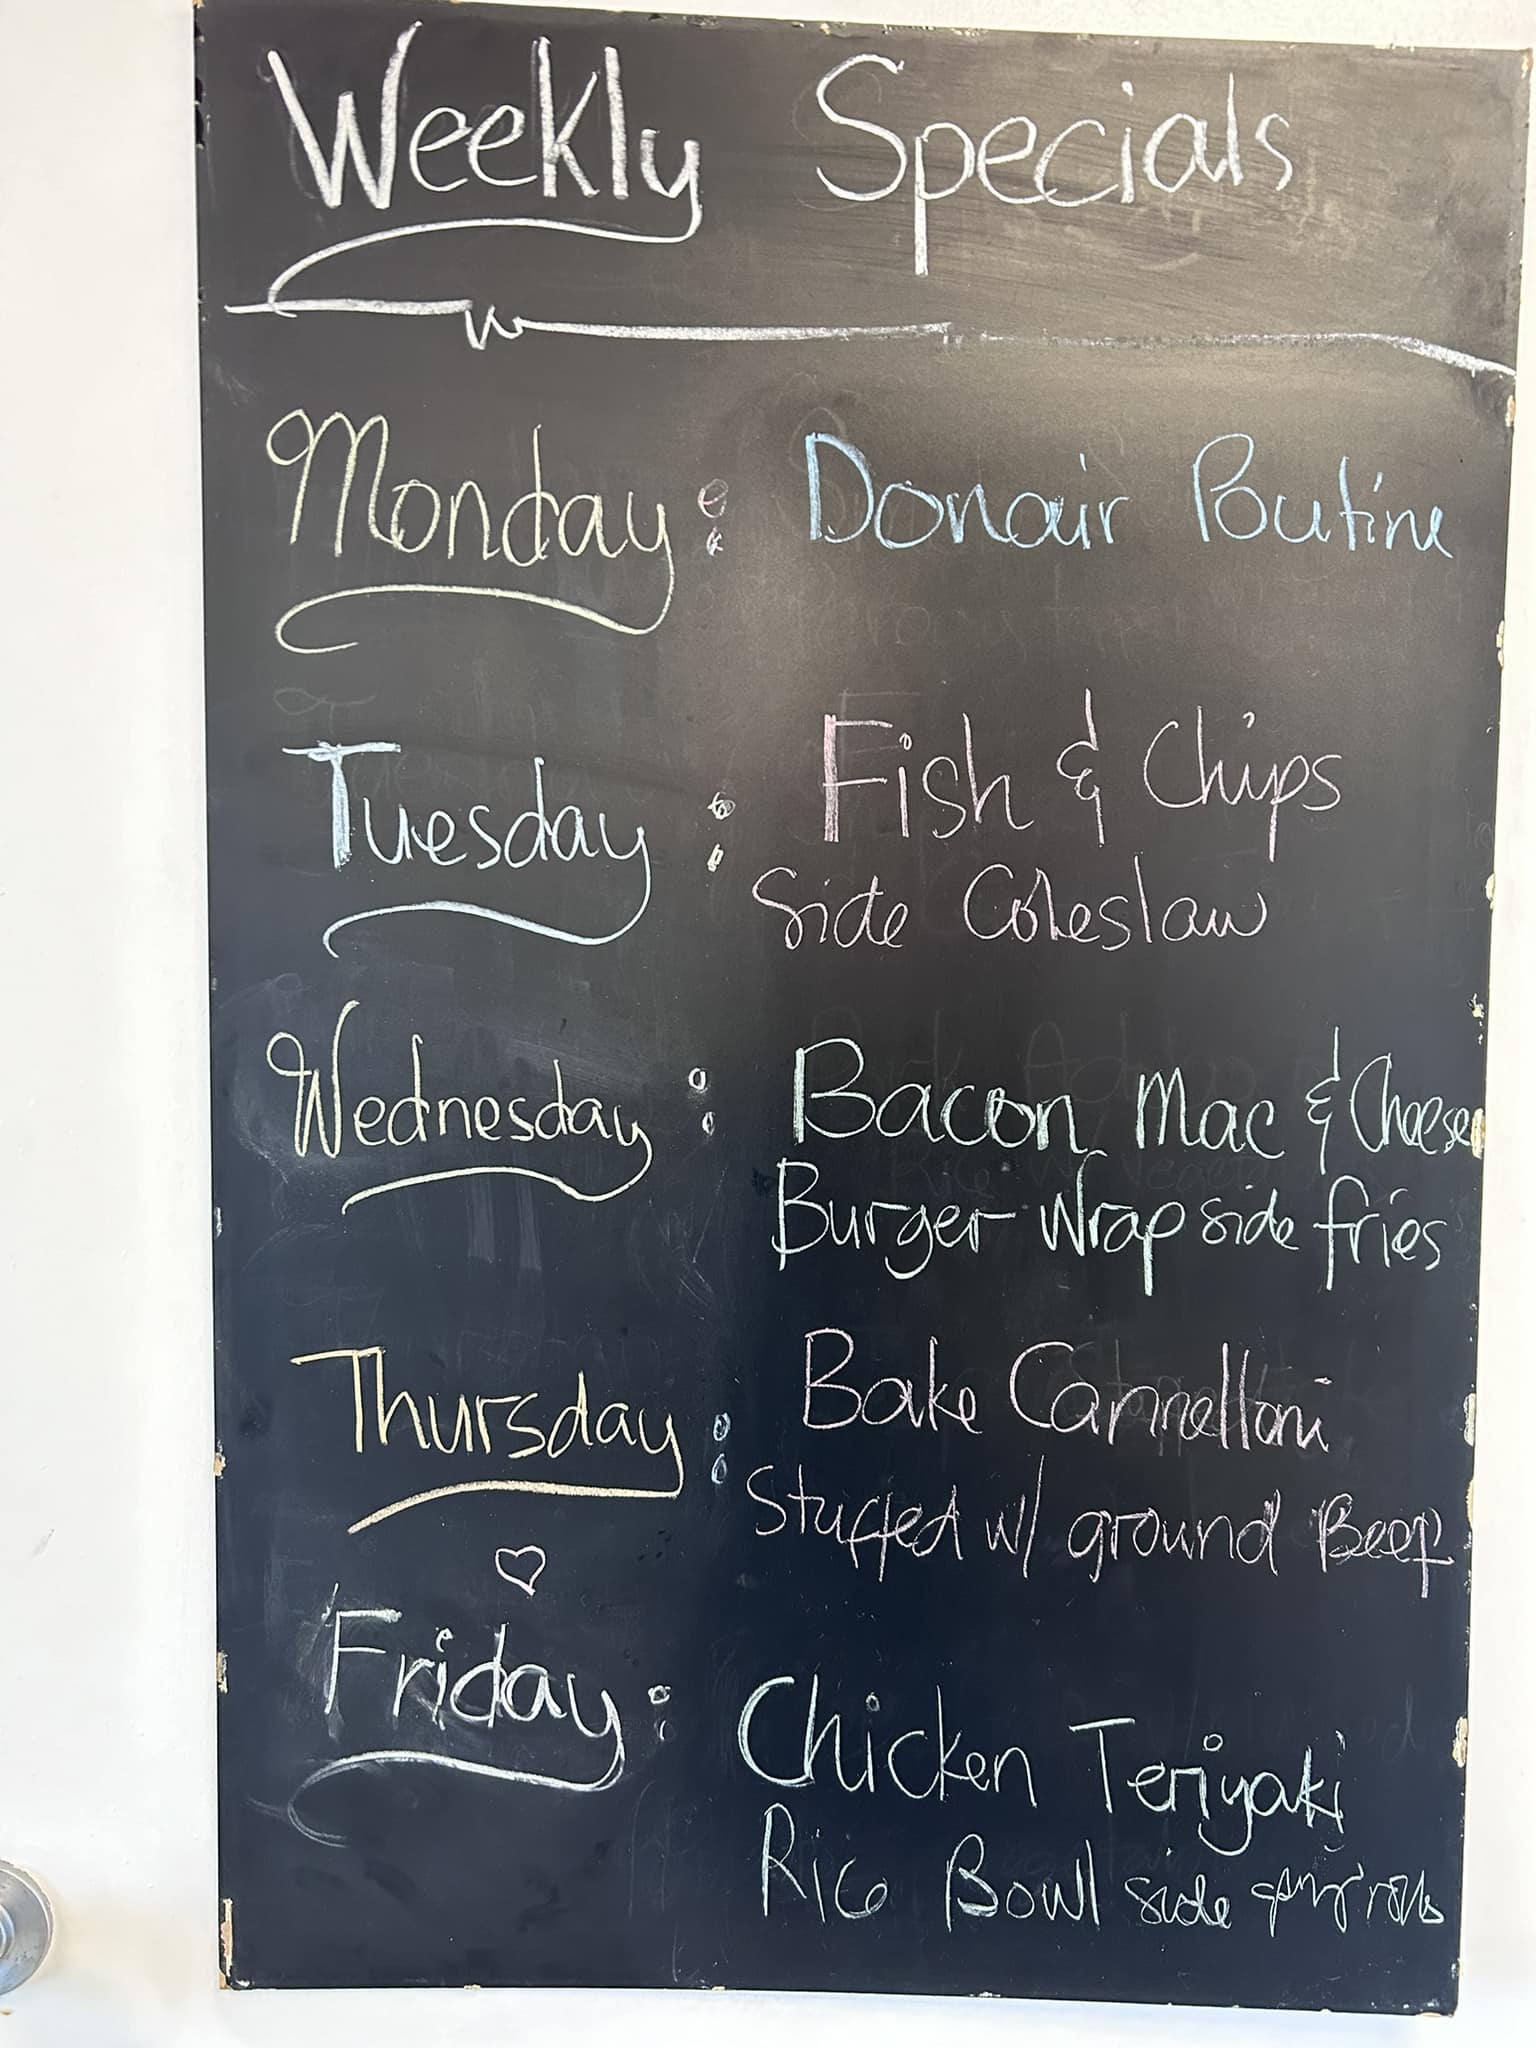 Weekly Specials
Monday: Donair Poutine
Tuesday: Fish & Chips
Side Coleslaw
Wednesday: Bacon Mac & Cheese
Burger Wrap side fries
Thursday: Bake Cannelloni
Stuffed w/ ground Beef
Friday: Chicken Teriyaki
Rice Bowl side spring rolls